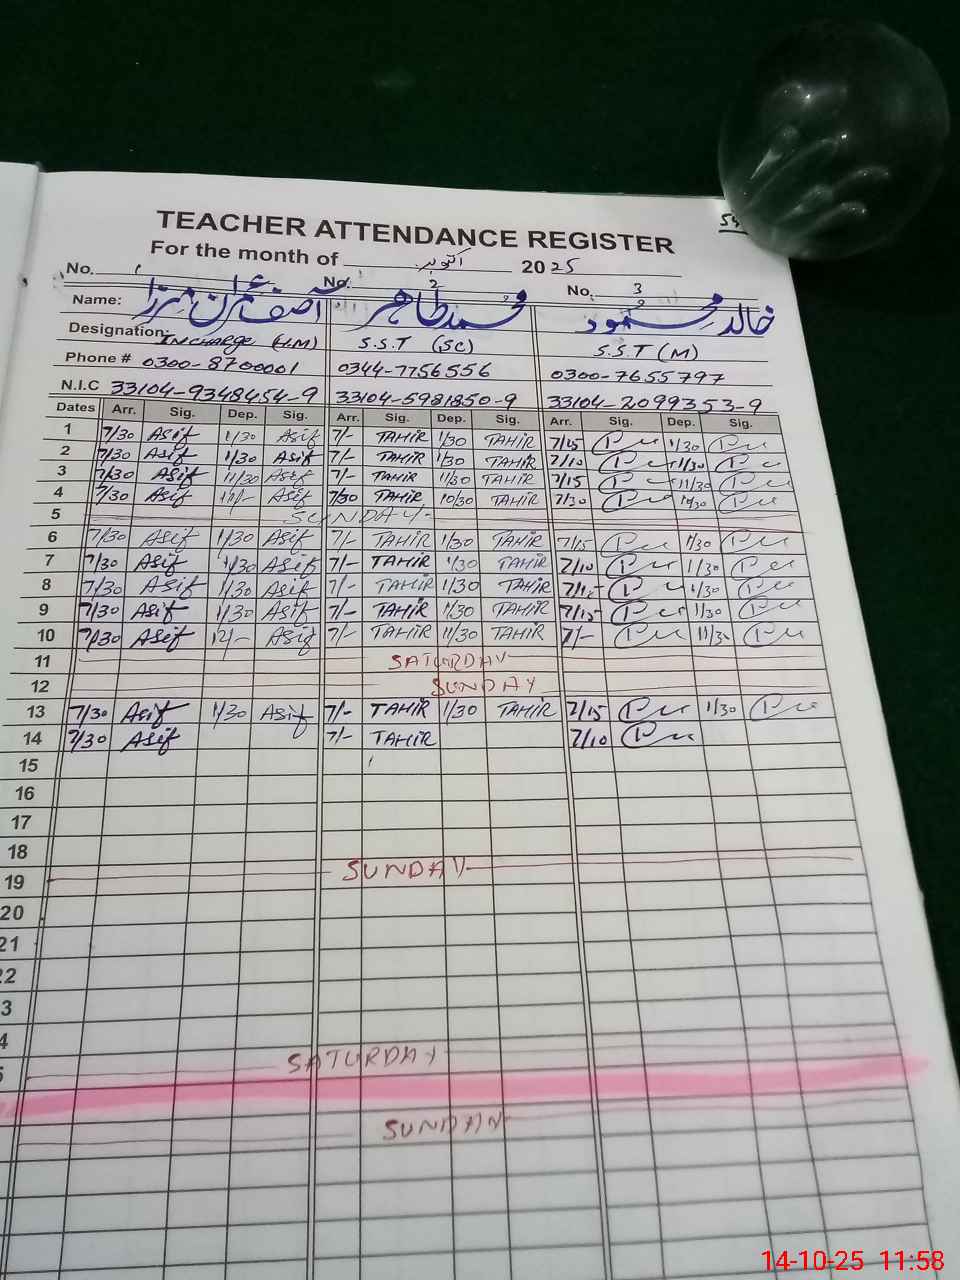 TEACHER ATTENDANCE REGISTER
For the month of اکتوبر 2025
No. 1 No. 2 No. 3
Name: آصف عمران میرزا محمد طاہر خالد محمود
Designation: INCHARGE (H.M) S.S.T (SC) S.S.T (M)
Phone # 0300-8700001 0344-7756556 0300-7655797
N.I.C 33104-9348454-9 33104-5981850-9 33104-2099353-9
Dates Arr. Sig. Dep. Sig. Arr. Sig. Dep. Sig. Arr. Sig. Dep. Sig.
1 7/30 Asif 1/30 Asif 7/- TAHIR 1/30 TAHIR 7/15 1/30
2 7/30 Asif 1/30 Asif 7/- TAHIR 1/30 TAHIR 7/10 1/30
3 7/30 Asif 11/30 Asif 7/- TAHIR 11/30 TAHIR 7/15 11/30
4 7/30 Asif Asif 7/30 TAHIR 10/30 TAHIR 7/30
5 SUNDAY
6 7/30 Asif 1/30 Asif 7/- TAHIR 1/30 TAHIR 7/15 1/30
7 7/30 Asif 1/30 Asif 7/- TAHIR 1/30 TAHIR 7/10 1/30
8 7/30 Asif 1/30 Asif 7/- TAHIR 1/30 TAHIR 7/15 1/30
9 7/30 Asif 1/30 Asif 7/- TAHIR 1/30 TAHIR 7/15 1/30
10 7/30 Asif 12/- Asif 7/- TAHIR 11/30 TAHIR 7/- 11/30
11 SATURDAY
12 SUNDAY
13 7/30 Asif 1/30 Asif 7/- TAHIR 1/30 TAHIR 7/15 1/30
14 7/30 Asif 7/- TAHIR 7/10
15
16
17
18
19 SUNDAY
20
21
22
3
4
5 SATURDAY
SUNDAY
14-10-25 11:58